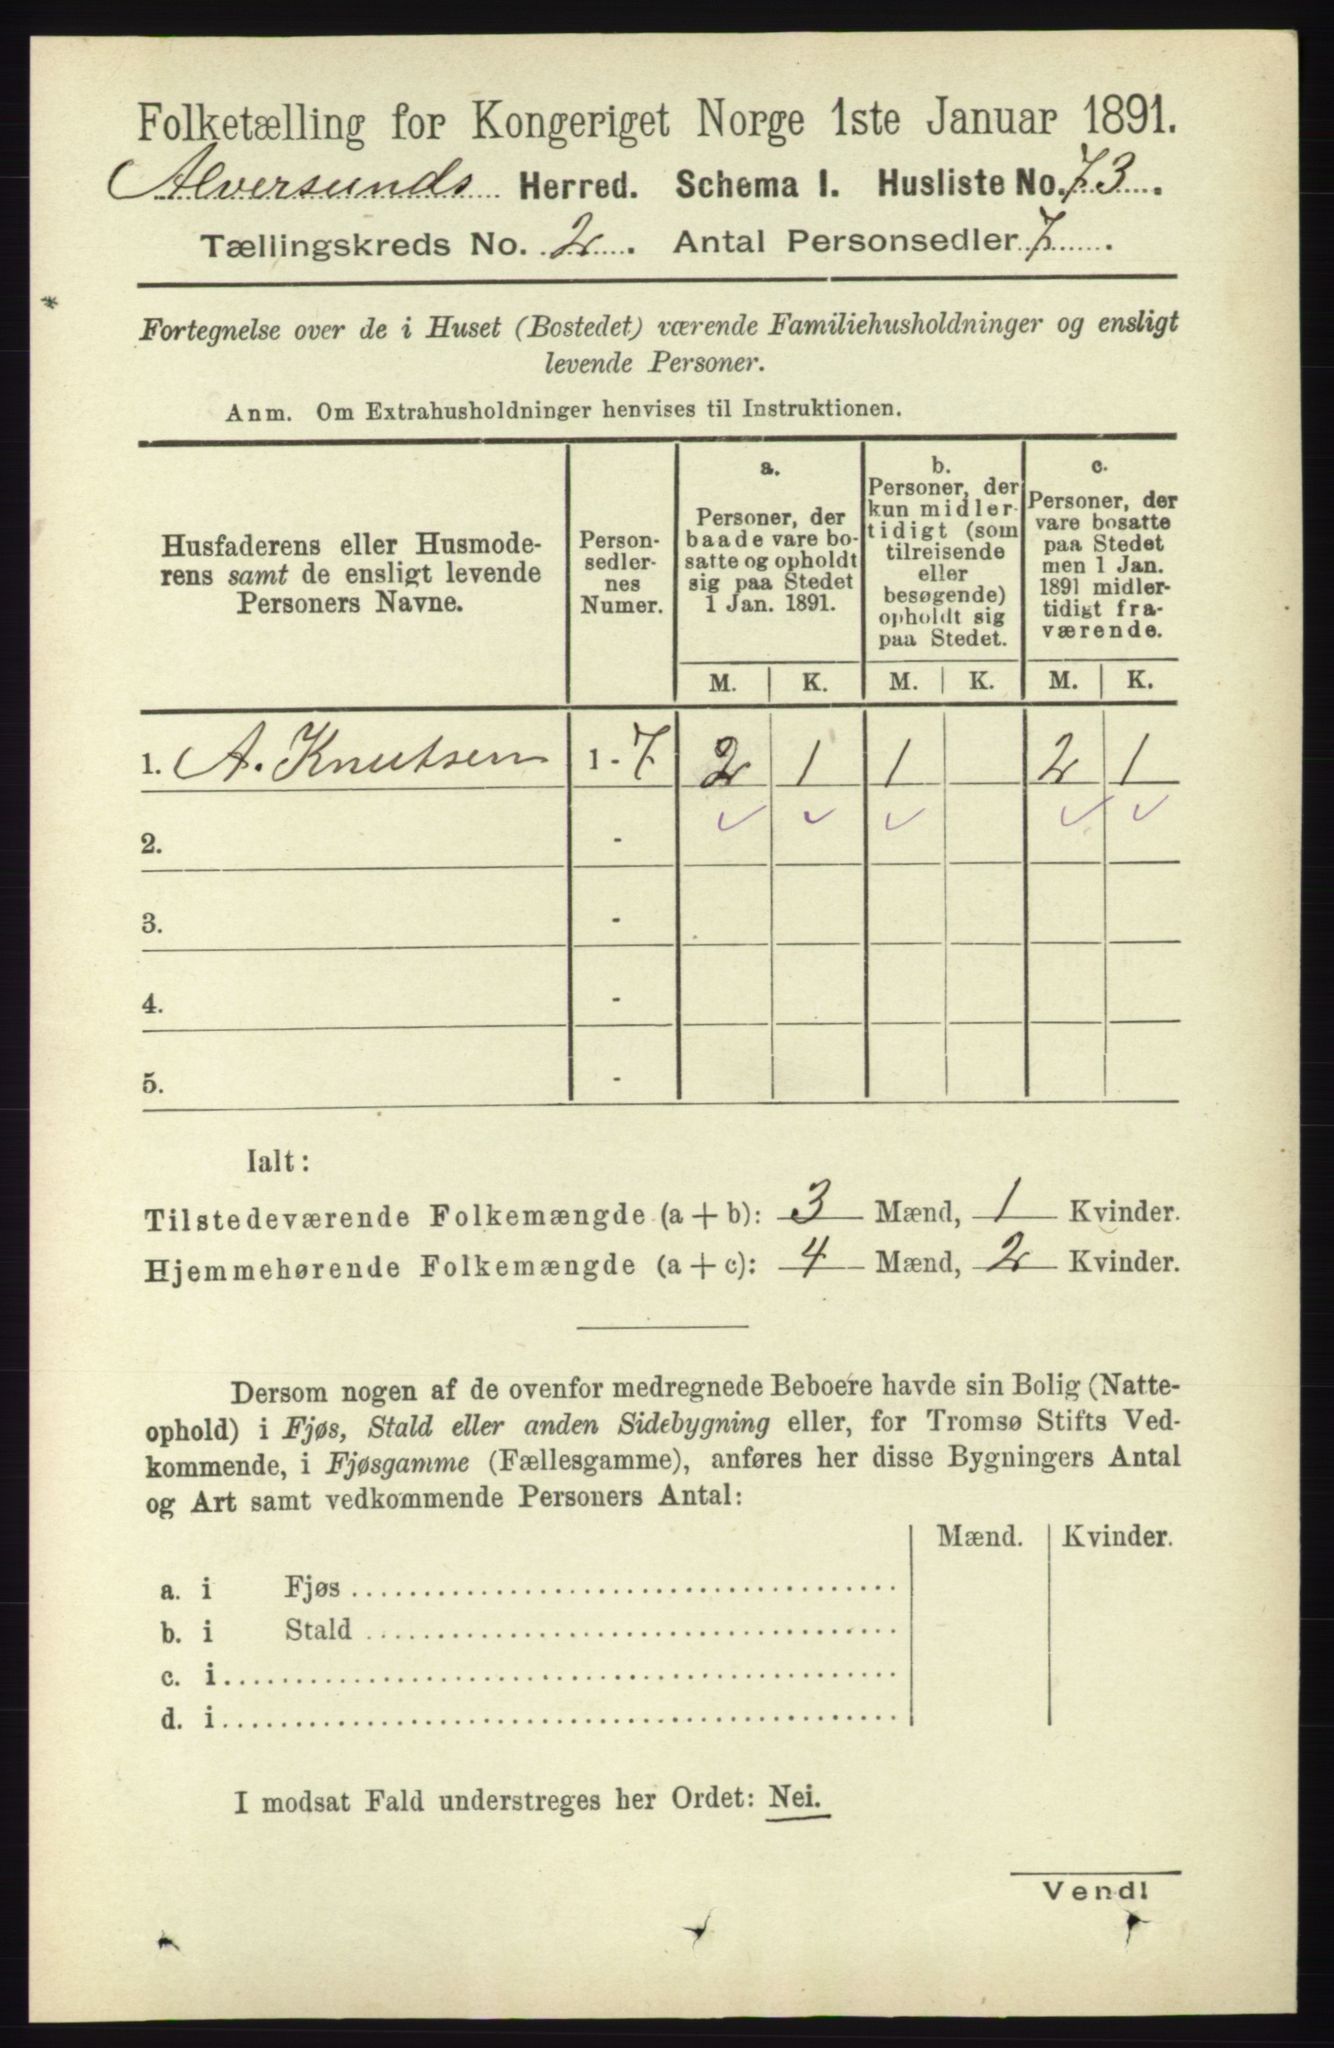 Folketælling for Kongeriget Norge 1ste Januar 1891.
Alversunds Herred. Schema I. Husliste No. 73.
Tællingskreds No. 2. Antal Personsedler 7.
Fortegnelse over de i Huset (Bostedet) værende Familiehusholdninger og ensligt
levende Personer.
Anm. Om Extrahusholdninger henvises til Instruktionen.
Husfaderens eller Husmode-
rens samt de ensligt levende
Personers Navne.
Person-
sedler-
nes
Numer.
a.
Personer, der
baade vare bo-
satte og opholdt
sig paa Stedet
1 Jan. 1891.
b.
Personer, der
kun midler-
tidigt (som
tilreisende
eller
besøgende)
opholdt sig
paa Stedet.
c.
Personer, der
vare bosatte
paa Stedet
men 1 Jan.
1891 midler-
tidigt fra-
værende.
M. K. M. K. M. K.
1. A. Knutsen 1 - 7 2 1 1 2 1
2. -
3. -
4. -
5. -
Ialt:
Tilstedeværende Folkemængde (a + b): 3 Mænd, 1 Kvinder.
Hjemmehørende Folkemængde (a + c): 4 Mænd, 2 Kvinder.
Dersom nogen af de ovenfor medregnede Beboere havde sin Bolig (Natte-
ophold) i Fjøs, Stald eller anden Sidebygning eller, for Tromsø Stifts Ved-
kommende, i Fjøsgamme (Fællesgamme), anføres her disse Bygningers Antal
og Art samt vedkommende Personers Antal:
Mænd. Kvinder.
a. i Fjøs
b. i Stald
c. i
d. i
I modsat Fald understreges her Ordet: Nei.
Vend!